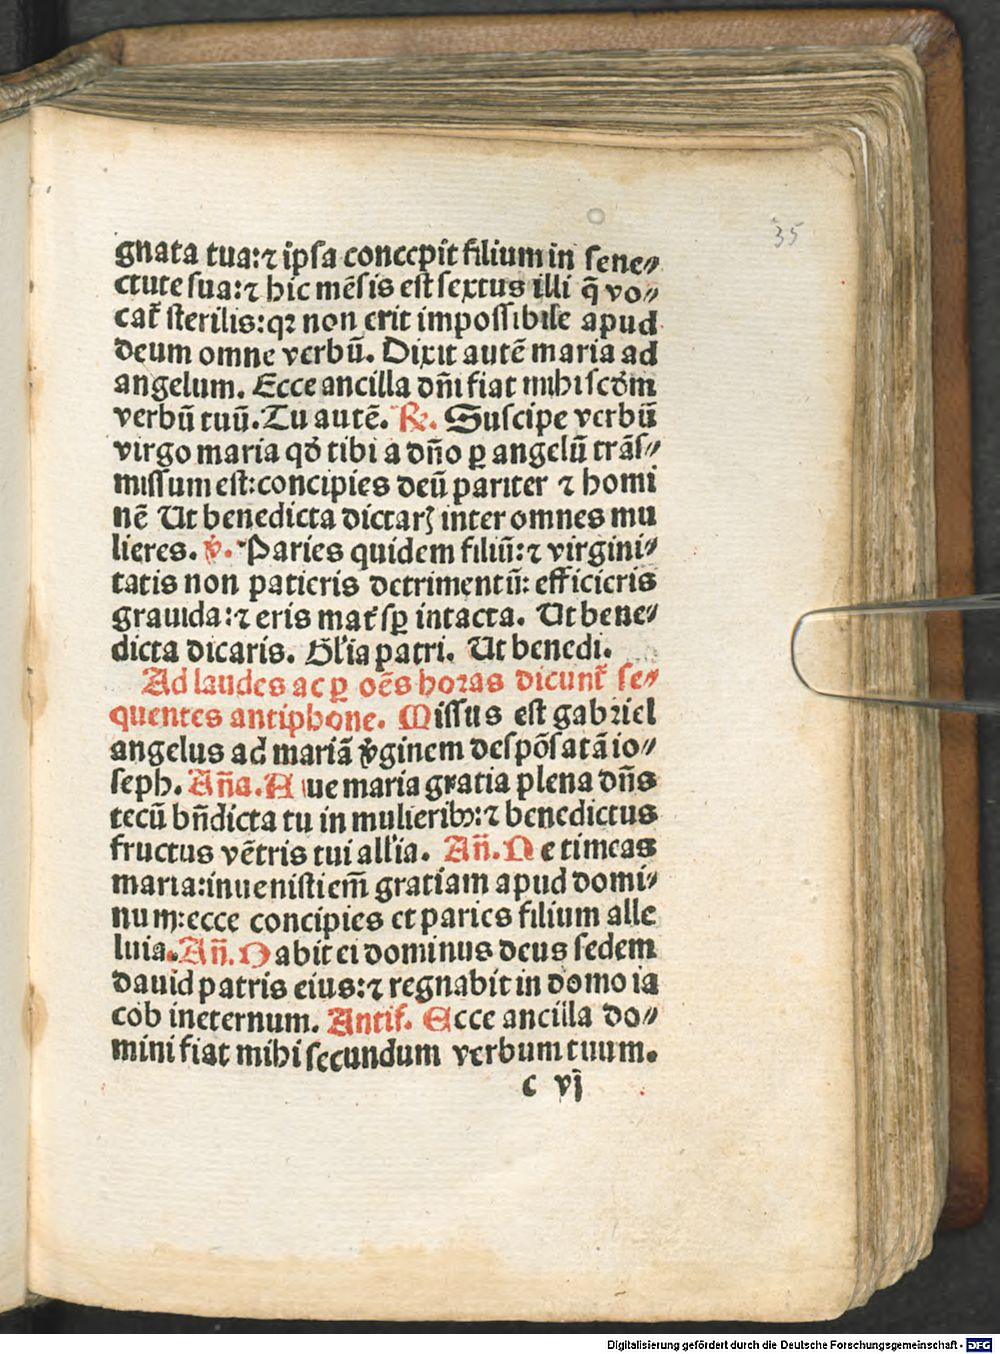 35
gnata tua:⁊ ipsa concepit filium in sene⸗
ctute sua:⁊ hic mēsis est sextus illi q̄ vo⸗
cat̄ sterilis:qꝛ non erit impossibile apud
deum omne verbū. Dixit autē maria ad
angelum. Ecce ancilla dn̄i fiat mihi scd̄m
verbū tuū. Tu autē. ℟. Suscipe verbū
virgo maria qd̄ tibi a dn̄o ꝑ angelū trās⸗
missum est:concipies deū pariter ⁊ homi
nē Ut benedicta dictarꝫ inter omnes mu
lieres. ℣. Paries quidem filiū:⁊ virgini⸗
tatis non patieris detrimentū: efficieris
grauida:⁊ eris mat̄ sꝑ intacta. Ut bene⸗
dicta dicaris. Gl'ia patri. Ut benedi.
Ad laudes ac ꝑ oēs horas dicunt̄ se⸗
quentes antiphone. Missus est gabriel
angelus ad mariā v̓ginem despōsatā io⸗
seph. Aña. Aue maria gratia plena dn̄s
tecū bn̄dicta tu in mulieribꝰ:⁊ benedictus
fructus vētris tui all'ia. Añ. Ne timeas
maria:inuenisti em̄ gratiam apud domi⸗
num:ecce concipies et paries filium alle
luia. Añ. Dabit ei dominus deus sedem
dauid patris eius:⁊ regnabit in domo ia
cob ineternum. Antif. Ecce ancilla do⸗
mini fiat mihi secundum verbum tuum.
c vj
Digitalisierung gefördert durch die Deutsche Forschungsgemeinschaft - DFG